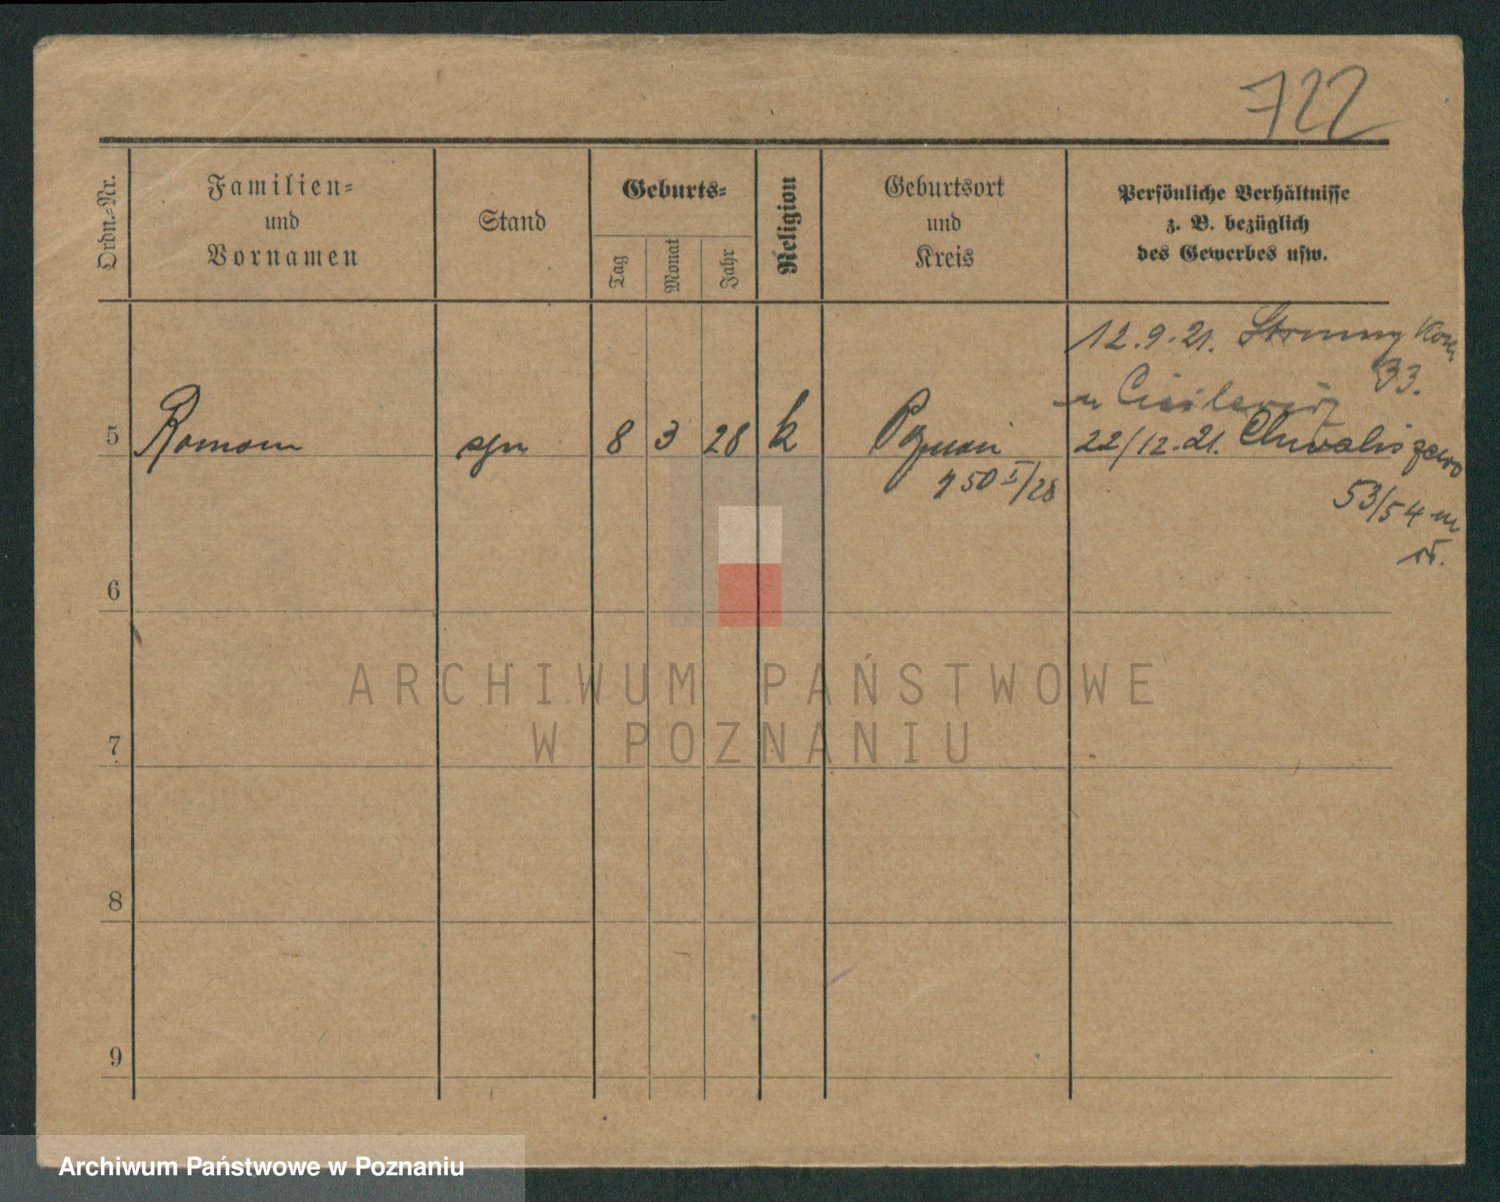 722
Ordn.=Nr.
Familien=
und
Vornamen
Stand
Geburts=
Tag
Monat
Jahr
Religion
Geburtsort
und
Kreis
Persönliche Verhältnisse
z. B. bezüglich
des Gewerbes usw.
12.9.21. Strumykowa
33.
5 Roman syn 8 3 28 k Poznań 22/12.21. Chwaliszewo
750 I/28
53/54 m
6
7
8
9
ARCHIWUM PAŃSTWOWE
W POZNANIU
Archiwum Państwowe w Poznaniu